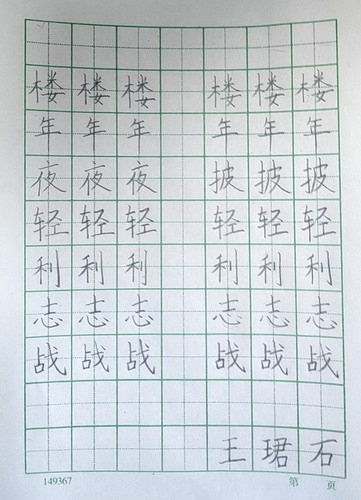 楼 楼 楼 楼 楼 楼
年 年 年 年 年 年
夜 夜 夜 披 披 披
轻 轻 轻 轻 轻 轻
利 利 利 利 利 利
志 志 志 志 志 志
战 战 战 战 战 战
王 珺 石
149367 第 页